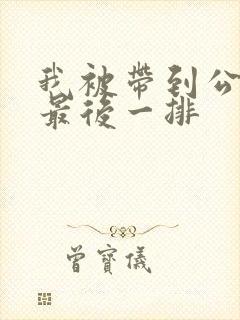 我被帶到公
最後一排
曾寶儀